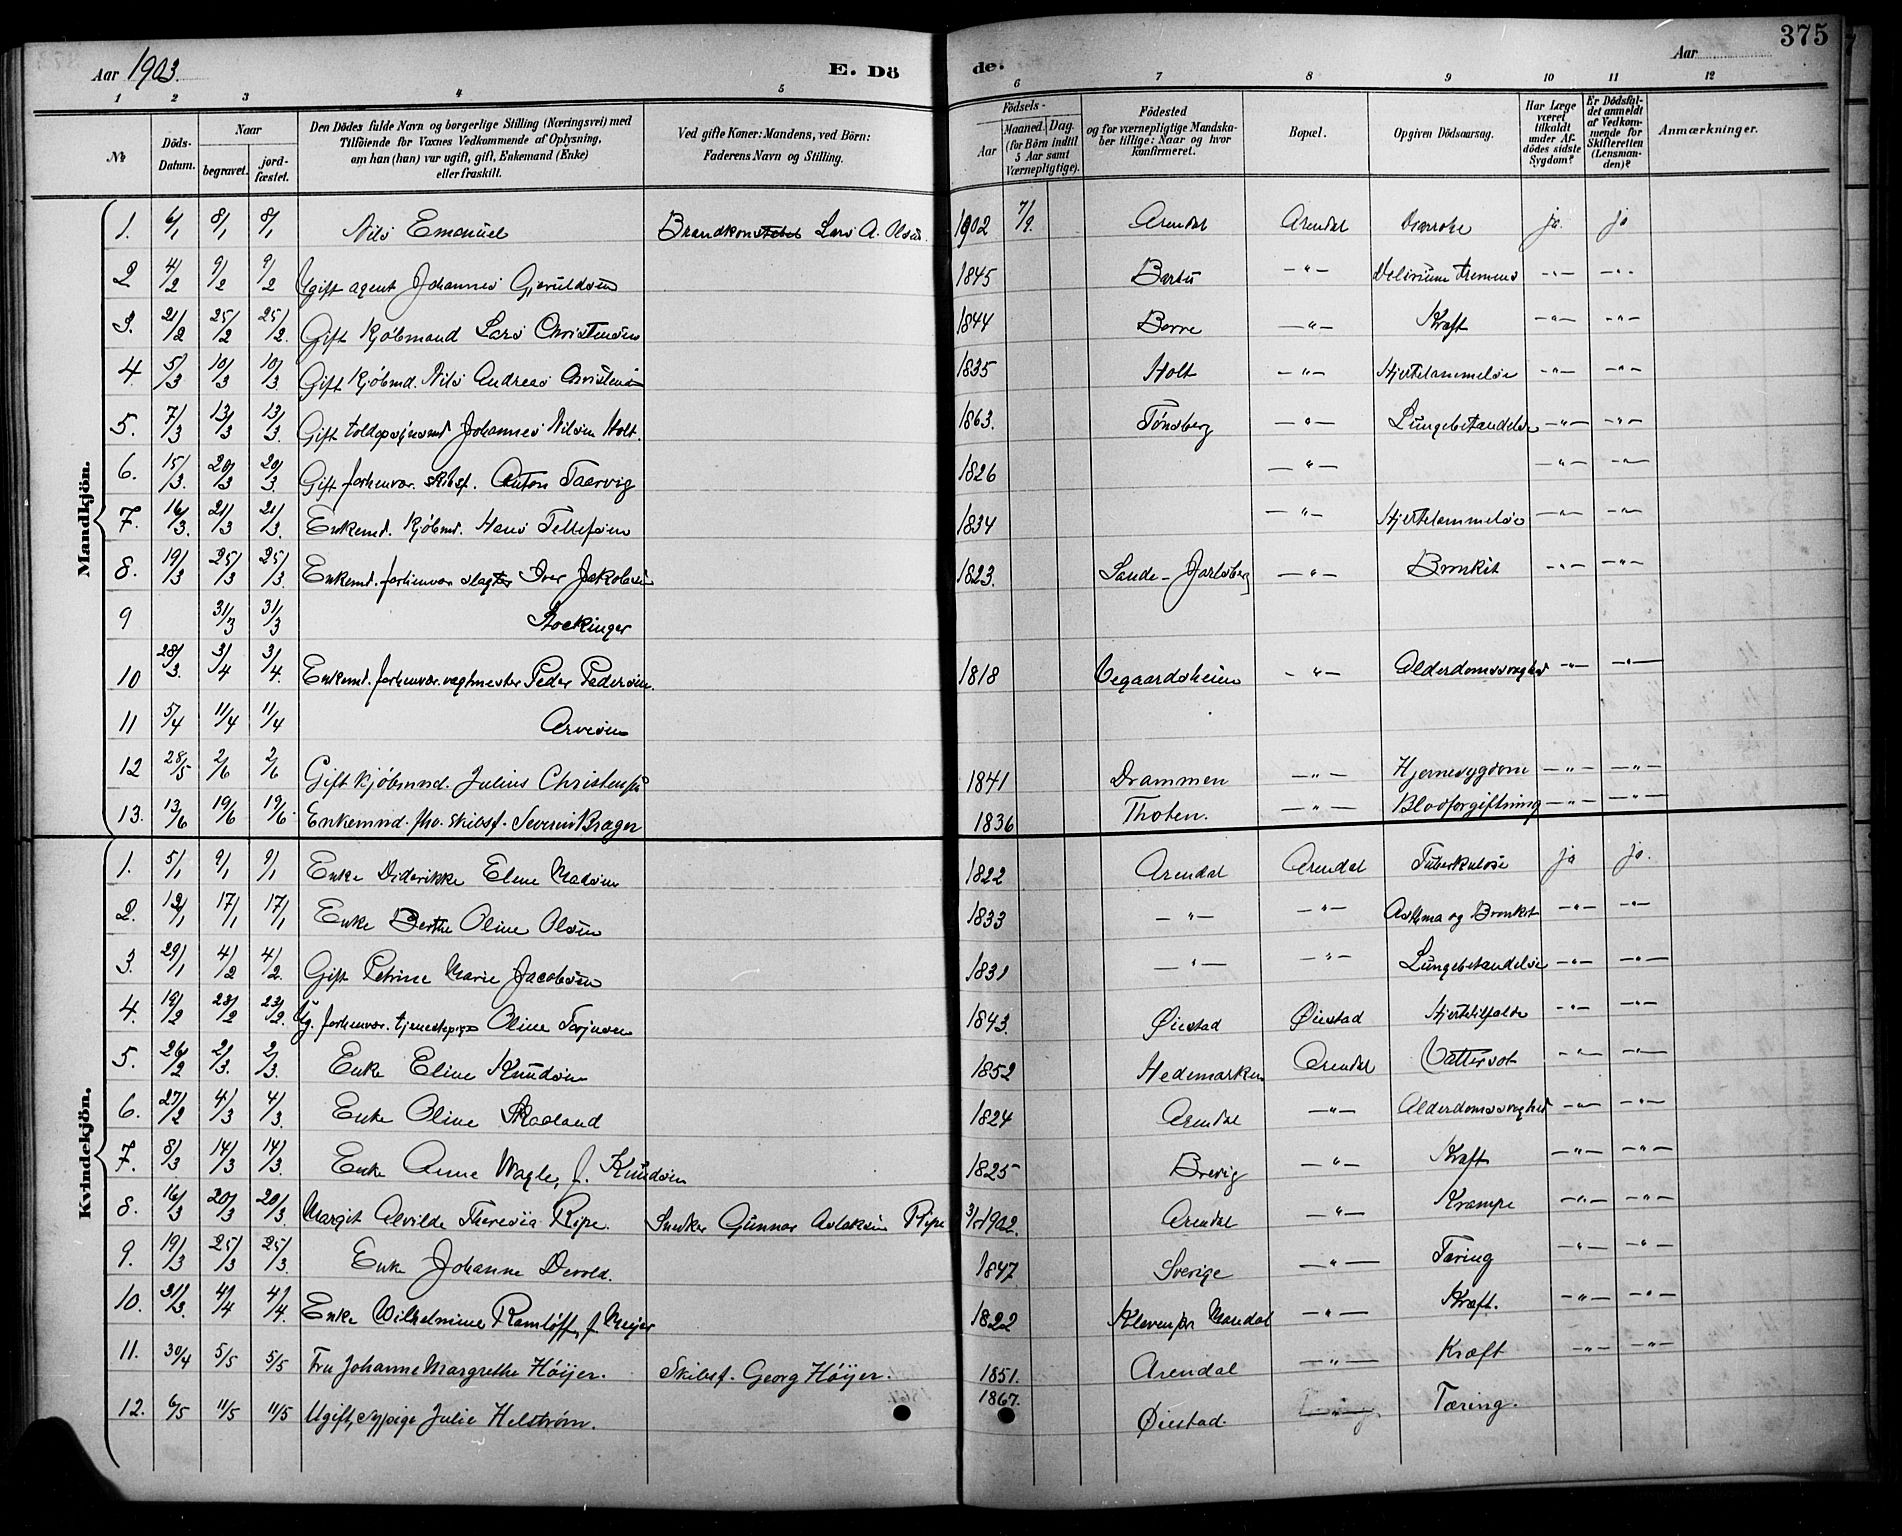 375
Aar 1903. E. Dö de. Aar
1 2 3 4 5 6 7 8 9 10 11 12
№ Döds-Datum. Naar begravet. jordfæstet. Den Dödes fulde Navn og borgerlige Stilling (Næringsvei) med Tilföiende for Voxnes Vedkommende af Oplysning, om han (han) var ugift, gift, Enkemand (Enke) eller fraskilt. Ved gifte Koner: Mandens, ved Börn: Faderens Navn og Stilling. Födsels- Aar Maaned. Dag. (for Börn indtil 5 Aar samt Værnepligtige). Födested og for værnepligtige Mandskaber tillige: Naar og hvor konfirmeret. Bopæl. Opgiven Dödsaarsag. Har Læge været tilkaldt under Afdödes sidste Sygdom? Er Dödsfaldet anmeldt af Vedkommende for Skifteretten (Lensmanden)? Anmærkninger.
Mandkjön.
1. 6/1 8/1 8/1 Nils Emanuel Brandkonstabel Lars A. Olsen. 1902 7/9. Arendal Arendal Diarrohe ja. ja
2 4/2 9/2 9/2 Ugift agent Johannes Gjeruldsen 1845 Barbu -"- Delirium tremens -"- -"-
3. 21/2 25/2 25/2. Gift Kjöbmand Lars Christensen 1844 Borre -"- Kræft -"- -"-
4. 5/3 10/3 10/3 Gift Kjöbmd. Nils Andreas Christensen 1835 Holt -"- Hjertelammelse -"- -"-
5. 7/3 13/3 13/3. Gift toldopsynsmd Johannes Nilsen Holt. 1863. Tönsberg -"- Lungebetændelse -"- -"-
6. 15/3. 20/3 20/3. Gift forhenvær. skibsf. Anton Taarvig 1826 -"- -"- -"-
7. 16/3. 21/3 21/3. Enkemd. Kjöbmd. Hans Tellefsen 1834 -"- Hjertelammelse -"- -"-
8. 19/3 25/3 25/3. Enkemd. forhenvær slagter Iver Jakobsen 1823. Sande - Jarlsberg -"- Bronkit -"- -"-
9 31/3 31/3 Stockinger
10 28/3. 3/4 3/4. Enkemd. forhenvær. vagtmester Peder Pedersen. 1818 Vegaardsheien -"- Alderdomssvaghed -"- -"-
11 5/4 11/4 11/4 Arvesen
12 28/5 2/6 2/6 Gift kjöbmnd. Julius Christensen 1841 Drammen -"- Hjernesygdom -"- -"-
13. 13/6 19/6 19/6. Enkemnd. fhv. skibsf. Severin Brager 1836 Thoten. -"- Blodforgiftning -"- -"-
Kvindekjön.
1. 5/1 9/1 9/1 Enke Diderikke Elene Madsen 1822 Arendal Arendal Tuberkulose ja ja.
2. 12/1 17/1 17/1 Enke Berthe Oline Olsen 1833 -"- -"- Astma og Bronkit -"- -"-
3. 29/1 4/2 4/2. Gift Petrine Marie Jacobsen 1831 -"- -"- Lungebetændelse -"- -"-
4. 19/2 23/2 23/2. Ug. forhenvær. tjenestepige Oline Terjesen 1843. Öiestad Öiestad Hjertetilfælde -"- -"-
5. 26/2 2/3. 2/3. Enke Eline Knudsen 1852 Hedemarken Arendal Vattersot -"- -"-
6. 27/2 4/3 4/3. Enke Oline Skaaland 1824 Arendal -"- Alderdomssvaghed -"- -"-
7. 8/3 14/3 14/3. Enke Anne Wagle, f. Knudsen 1825 Brevig -"- Kræft -"- -"-
8. 16/3 20/3 20/3. Margit Alvilde Theresia Ripe. Snedker Gunnar Aslaksen Ripe 1902. Arendal -"- Krampe -"- -"-
9. 19/3 25/3 25/3. Enke Johanne Devold. 1847 Sverige -"- Tæring -"- -"-
10. 31/3. 4/4 4/4. Enke Wilhelmine Ramlöff, f. Meyer 1822 Kleven pr Mandal -"- Kræft. -"- -"-
11. 30/4 5/5 5/5 Fru Johanne Margrethe Höijer. Skibsf. Georg Höijer. 1851. Arendal -"- Kræft -"- -"-
12. 6/5 11/5 11/5 Ugift, sypige Julie Helström. 1867. Öiestad. -"- Tæring.